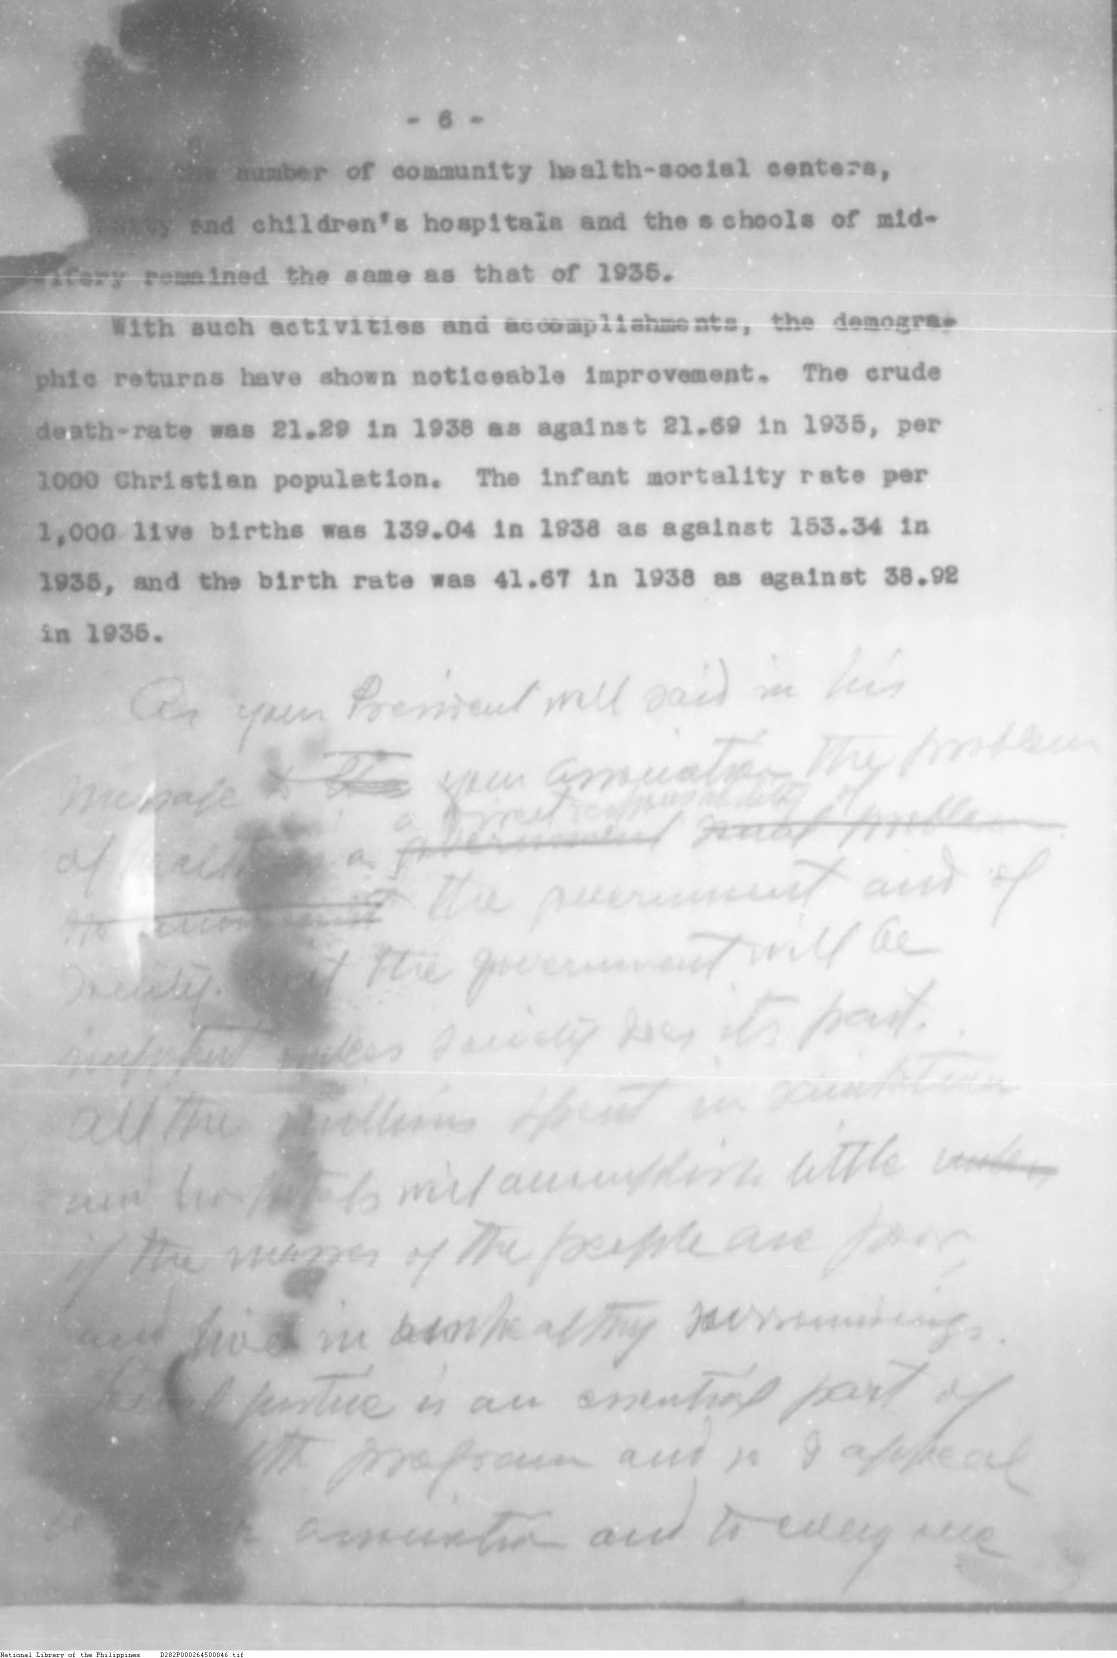 - 6 -
The number of community health-social centers,
and children's hospitals and the s chools of mid-
wifery remained the same as that of 1935.
With such activities and accomplishments, the demogra-
phic returns have shown noticeable improvement. The crude
death-rate was 21.29 in 1938 as against 21.69 in 1935, per
1000 Christian population. The infant mortality rate per
1,000 live births was 139.04 in 1938 as against 153.34 in
1935, and the birth rate was 41.67 in 1938 as against 38.92
in 1935.
As your President well said in his
message your association the problem
a direct responsibility of
of health is a government social problem
the government and of
society. But the government will be
unless society does its part.
all the millions spent in sanitation
and hospitals will accomplish little unless
if the masses of the people are poor
and live in unhealthy surroundings.
Social justice is an essential part of
health program and so I appeal
association and to every one
National Library of the Philippines D282P000264500046.tif